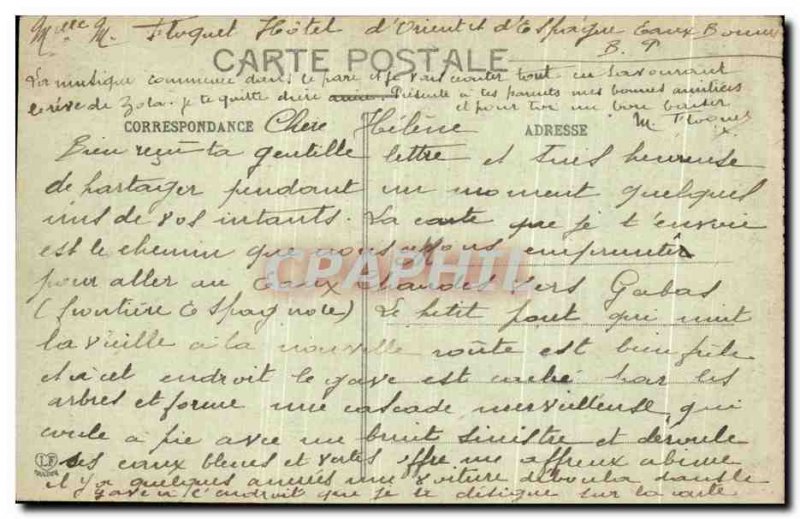 Melle M. Floquet Hôtel d'Orient et d'Espagne Eaux Bonnes
B. P
CARTE POSTALE
La musique commence dans le parc et je vais écouter tout en savourant
le rêve de Zola. je te quitte chère amie. Présente à tes parents mes bonnes amitiés
et pour toi un bon baiser
M. Floquet
CORRESPONDANCE Chère Hélène ADRESSE
Bien reçu ta gentille lettre et suis heureuse
de partager pendant un moment quelques
uns de vos instants. La carte que je t'envoie
est le chemin que nous allons emprunter
pour aller au Eaux chaudes vers Gabas
(frontière Espagnole) Le petit pont qui unit
la vieille à la nouvelle route est bien frêle
et à cet endroit le gave est caché par les
arbres et forme une cascade merveilleuse, qui
coule à pic avec un bruit sinistre et déroule
ses eaux bleues et vertes offre un affreux abîme
il y a quelques années une voiture déboula dans le
gave à l'endroit que je te désigne sur la carte
CPAPHIL
LF